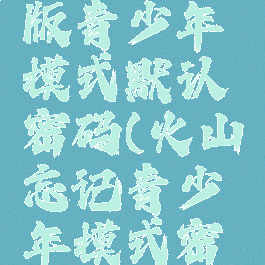 版青少年
模式默认
密码(火山
忘记青少
年模式密